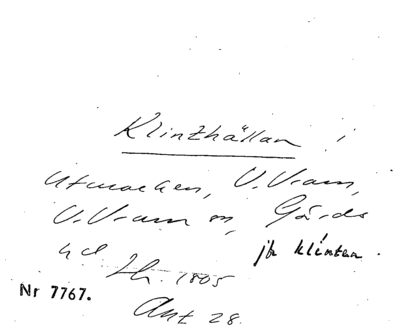 Klinthällan i
utmarken, V. Vram,
V. Vram sn, Gärds
hd. 1805
jfr klinten.
Nr 7767.
Akt 28.